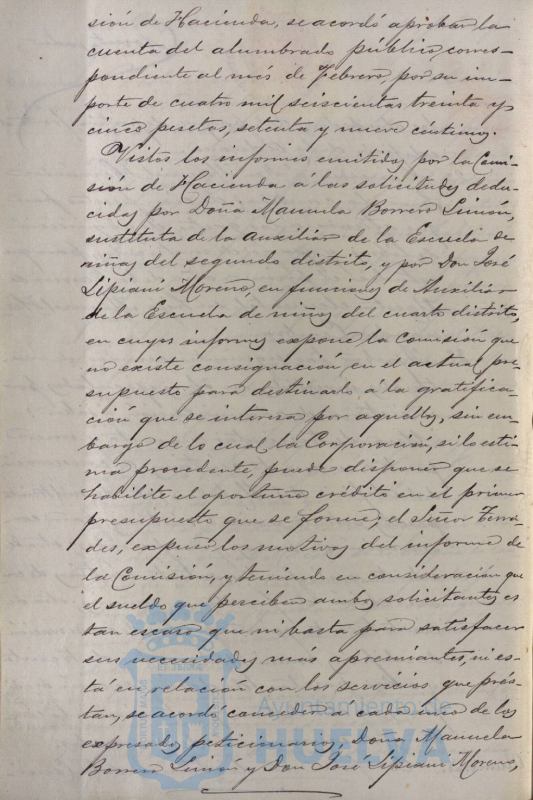 sión de Hacienda, se acordó aprobar la
cuenta del alumbrado público, corres-
pondiente al més de Febrero, por su im-
porte de cuatro mil seiscientas treinta y
cinco pesetas, setenta y nueve céntimos.
Vistos los informes emitidos por la Comi-
sión de Hacienda á las solicitudes dedu-
cidas por Doña Manuela Borrero Limón,
sustituta de la Auxiliar de la Escuela de
niñas del segundo distrito, y por Don José
Lipiani Moreno, en funciones de Auxiliar
de la Escuela de niños del cuarto distrito,
en cuyos informes expone la Comisión que
no existe consignación en el actual pre-
supuesto para destinarlo á la gratifica-
ción que se interesa por aquellos, sin em-
bargo de lo cual la Corporación, si lo esti-
ma procedente, puede disponer que se
habilite el oportuno crédito en el primer
presupuesto que se forme; el Señor Terra-
des, expuso los motivos del informe de
la Comisión, y teniendo en consideración que
el sueldo que perciben ambos solicitantes es
tan escaso que ni basta para satisfacer
sus necesidades más apremiantes, ni es-
tá en relación con los servicios que prés-
tan, se acordó conceder a cada uno de los
expresados peticionarios, Doña Manuela
Borrero Limón y Don José Lipiani Moreno,
Ayuntamiento de
HUELVA